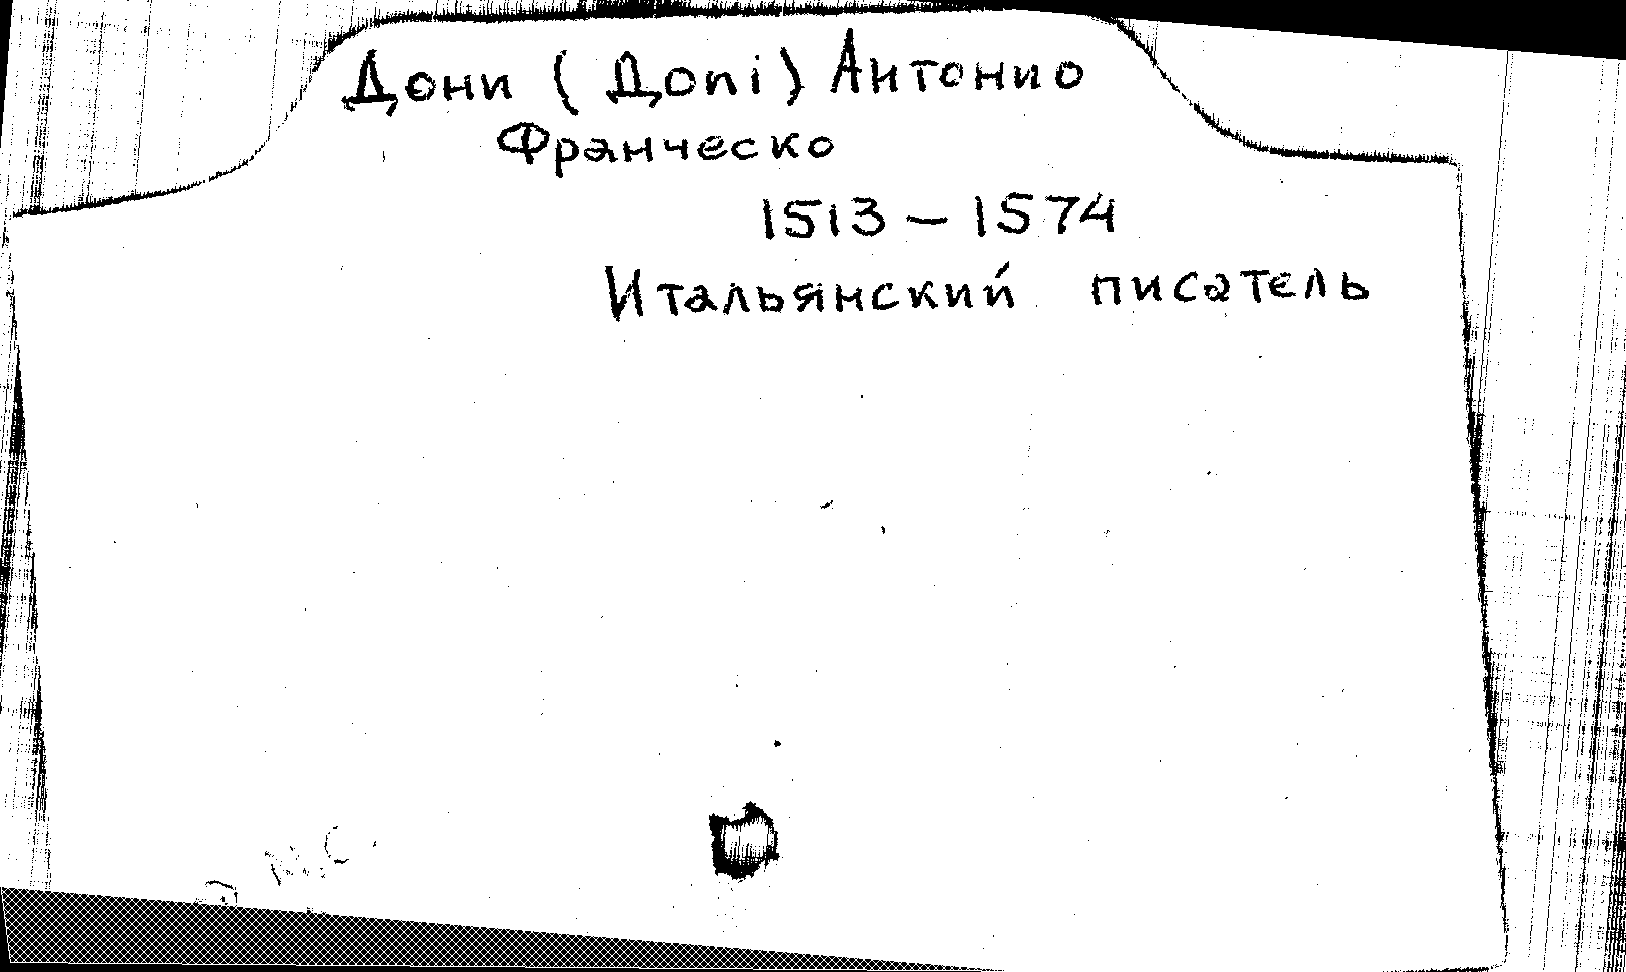 Дони (Допi) Антонио
Франческо
1513 – 1574
Итальянский писатель